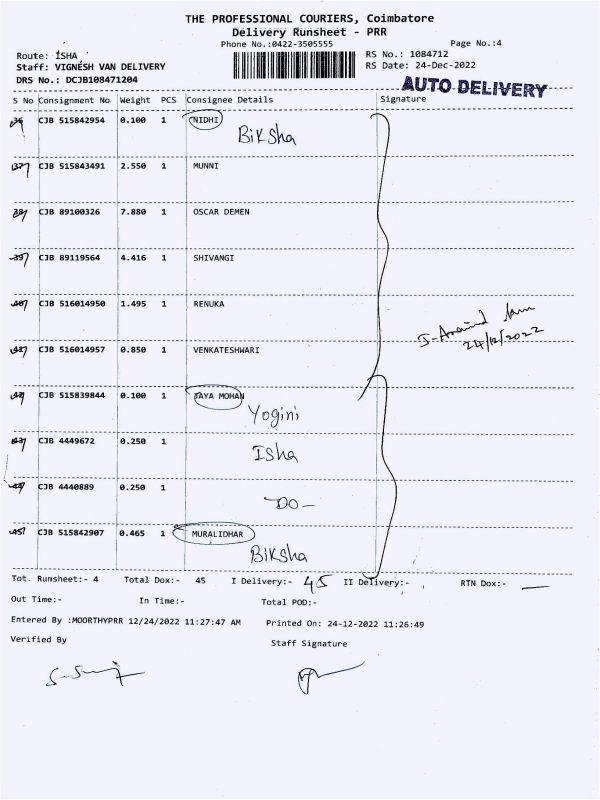 THE PROFESSIONAL COURIERS, Coimbatore
Delivery Runsheet - PRR
Phone No.:0422-3505555
Page No.:4
Route: ISHA
RS No.: 1084712
Staff: VIGNESH VAN DELIVERY
RS Date: 24-Dec-2022
DRS No.: DCJB108471204
AUTO DELIVERY
S No Consignment No Weight PCS Consignee Details Signature
36 CJB 515842954 0.100 1 NIDHI
Biksha
37 CJB 515843491 2.550 1 MUNNI
38 CJB 89100326 7.880 1 OSCAR DEMEN
39 CJB 89119564 4.416 1 SHIVANGI
40 CJB 516014950 1.495 1 RENUKA
24/12/2022
CJB 516014957 0.850 1 VENKATESHWARI
CJB 515839844 0.100 1 JAYA MOHAN
Yogini
43 CJB 4449672 0.250 1
Isha
44 CJB 4440889 0.250 1
DO-
45 CJB 515842907 0.465 1 MURALIDHAR
Biksha
Tot. Runsheet:- 4 Total Dox:- 45 I Delivery:- 45 II Delivery:- RTN Dox:- —
Out Time:- In Time:- Total POD:-
Entered By :MOORTHYPRR 12/24/2022 11:27:47 AM Printed On: 24-12-2022 11:26:49
Verified By Staff Signature